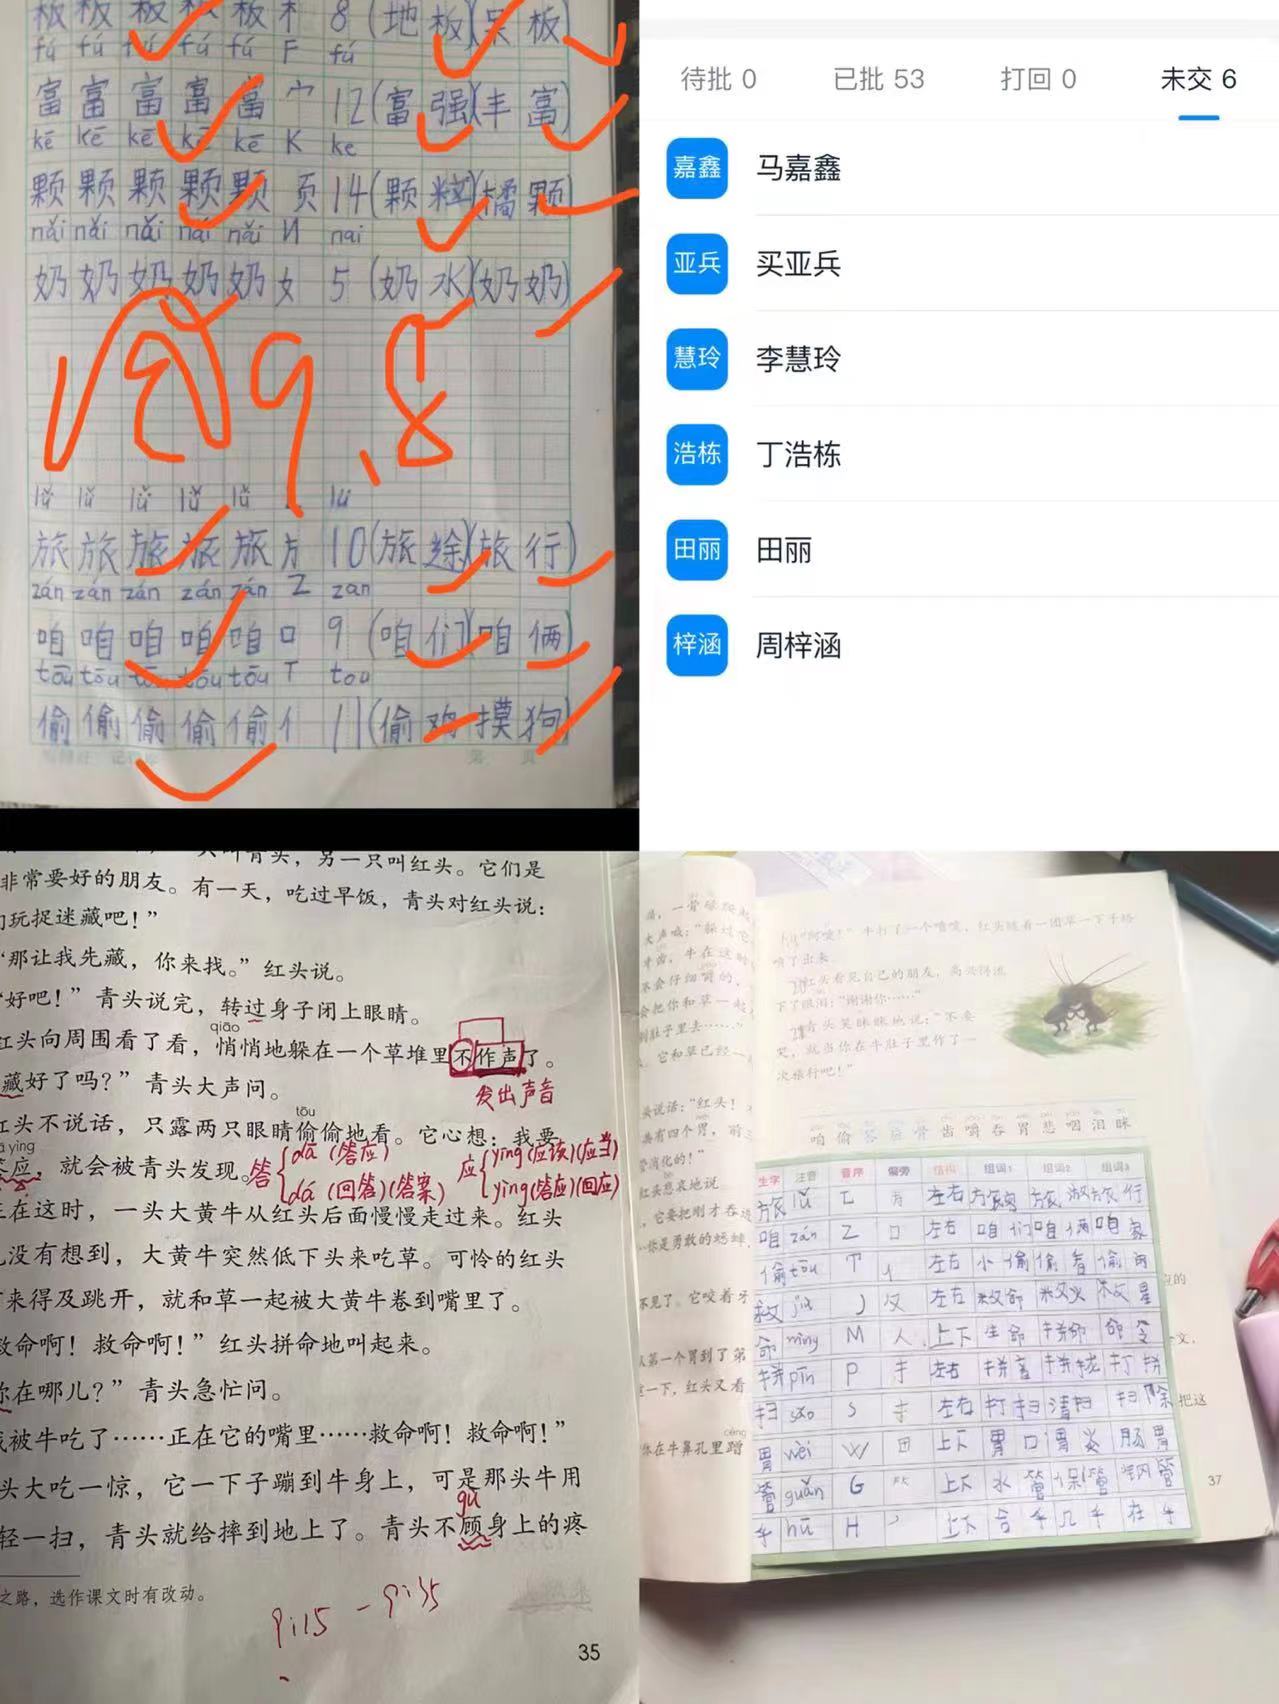 板 板 板 板 板 木 8 (地板)(呆板)
fú fú fú fú fú F fú
富 富 富 富 富 宀 12 (富强)(丰富)
kē kē kē kē kē K ke
颗 颗 颗 颗 颗 页 14 (颗粒)(橘颗)
nǎi nǎi nǎi nǎi nǎi N nai
奶 奶 奶 奶 奶 女 5 (奶水)(奶奶)
优 9.8
lǚ lǚ lǚ lǚ lǚ L lu
旅 旅 旅 旅 旅 方 10 (旅途)(旅行)
zán zán zán zán zán Z zan
咱 咱 咱 咱 咱 口 9 (咱们)(咱俩)
tōu tōu tōu tōu tōu T tou
偷 偷 偷 偷 偷 亻 11 (偷鸡摸狗)
待批 0 已批 53 打回 0 未交 6
嘉鑫 马嘉鑫
亚兵 买亚兵
慧玲 李慧玲
浩栋 丁浩栋
田丽 田丽
梓涵 周梓涵
只叫青头，另一只叫红头。它们是
非常要好的朋友。有一天，吃过早饭，青头对红头说：
们玩捉迷藏吧！”
“那让我先藏，你来找。”红头说。
“好吧！”青头说完，转过身子闭上眼睛。
qiāo
红头向周围看了看，悄悄地躲在一个草堆里不作声了。
藏好了吗？”青头大声问。
发出声音
tōu
红头不说话，只露两只眼睛偷偷地看。它心想：我要
ā ying
答应，就会被青头发现。
答 dā (答应)
dá (回答)(答案)
应 yīng (应该)(应当)
yìng (答应)(回应)
正在这时，一头大黄牛从红头后面慢慢走过来。红头
没有想到，大黄牛突然低下头来吃草。可怜的红头
来得及跳开，就和草一起被大黄牛卷到嘴里了。
救命啊！救命啊！”红头拼命地叫起来。
你在哪儿？”青头急忙问。
我被牛吃了……正在它的嘴里……救命啊！救命啊！”
头大吃一惊，它一下子蹦到牛身上，可是那头牛用
gù
轻一扫，青头就给摔到地上了。青头不顾身上的疼
之路，选作课文时有改动。
35
“阿嚏！”牛打了一个喷嚏，红头随着一团草一下子给
喷了出来。
红头看见自己的朋友，高兴得流
下了眼泪：“谢谢你……”
青头笑眯眯地说：“不要
哭，就当你在牛肚子里作了一
次旅行吧！”
咱 偷 答 应 骨 齿 嚼 吞 胃 悲 咽 泪 眯
生字 注音 音序 偏旁 结构 组词1 组词2 组词3
旅 lǚ L 方 左右 旅客 旅游 旅行
咱 zán Z 口 左右 咱们 咱俩 咱家
偷 tōu T 亻 左右 小偷 偷看 偷肉
救 jiù J 攵 左右 救命 救火 救星
命 mìng M 人 上下 生命 拼命 命令
拼 pīn P 扌 左右 拼音 拼拢 打拼
扫 sǎo S 扌 左右 打扫 清扫 扫除
胃 wèi W 田 上下 胃口 胃炎 肠胃
管 guǎn G 上下 水管 保管 钢管
乎 hū H 丿 上下 合乎 几乎 在乎
cēng
你在牛鼻孔里蹭
37